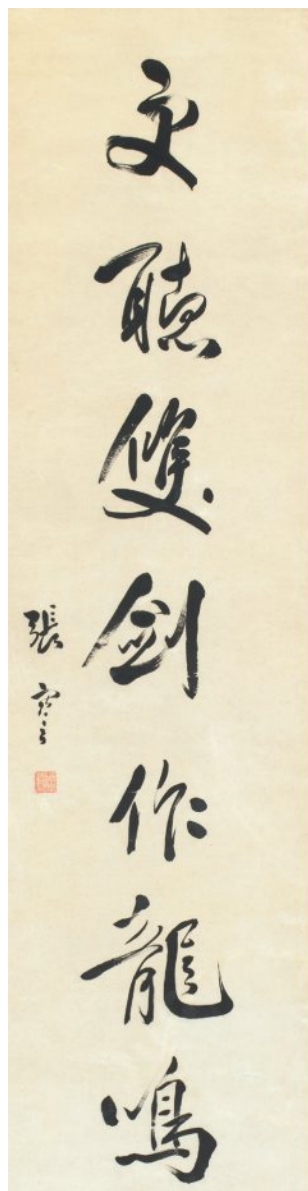 更聽雙劍作龍鳴
張謇